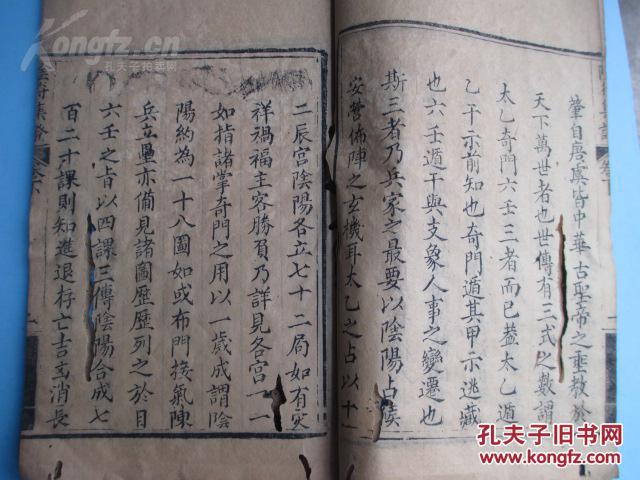 肇自唐虞皆中華古聖帝之垂教於
天下萬世者也世傳有三式之數謂
太乙奇門六壬三者而已蓋太乙遁
乙干示前知也奇門遁其甲示逃藏
也六壬遁干與支象人事之變遷也
斯三者乃兵家之最要以陰陽占候
安營佈陣之玄機耳太乙之占以十
二辰宮陰陽各立七十二局如有災
祥禍福主客勝負乃詳見各宮一一
如指諸掌奇門之用以一歲成謂陰
陽約為一十八圖如或布門接氣陳
兵立壘亦備見諸圖歷歷列之於目
六壬之旨以四課三傳陰陽合成七
百二十課則知進退存亡吉凶消長
Kongfz.cn
孔夫子拍卖网
孔夫子旧书网
www.kongfz.com